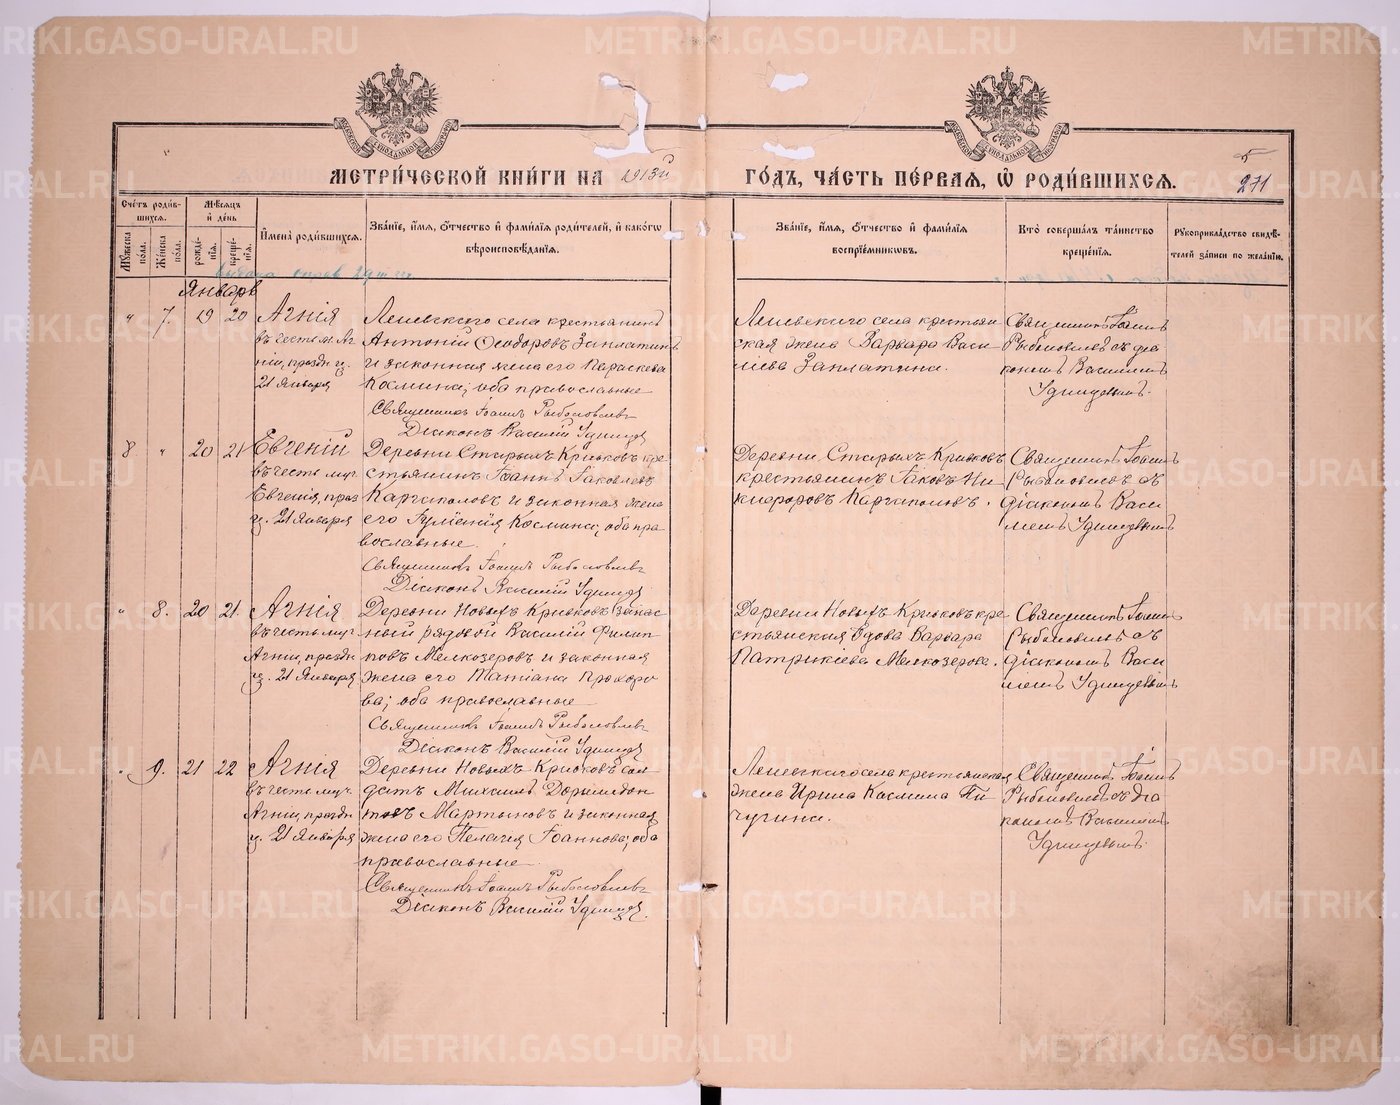 METRIKI.GASO-URAL.RU
МЕТРИ́ЧЕСКОЙ КНИ́ГИ НА 1913й ГО́ДЪ, ЧА́СТЬ ПЕ́РВАЯ, Ѡ РОДИ́ВШИХСЯ.
5
271
Сче́тъ роди́в-
шихся.
Му́жеска по́ла.
Же́нска по́ла.
Мѣ́сяцъ
и де́нь
рожде́-
нія.
креще́-
нія.
Имена̀ роди́вшихся.
Зва́ніе, и́мя, о́тчество и фами́лія роди́телей, и како́гѡ
вѣроисповѣ́данія.
Зва́ніе, и́мя, о́тчество и фами́лія
воспріе́мниковъ.
Кто̀ соверша́лъ та́инство
креще́нія.
Рукоприкла́дство свидѣ́-
телей за́писи по жела́нію.
Январь
„ 7. 19 20
Агнія
въ честь м. Аг-
ніи, праздн. ц.
21 Января
Ляпевскаго села крестьянинъ
Антоній Ѳеодоровъ Заплатинъ
и законная жена его Параскева
Космина; оба православные
Священникъ Іоаннъ Рыболовлевъ
Діаконъ Василій Удинцев
Ляпевскаго села крестьян-
ская жена Варвара Васи-
лiева Заплатина.
Священникъ Іоаннъ
Рыболовлевъ съ діа-
кономъ Василіемъ
Удинцевымъ.
8 „ 20 21
Евгеній
въ честь муч.
Евгенія, праз.
ц. 21 Января
Деревни Старыхъ Крюковъ кре-
стьянинъ Іоаннъ Іаковлевъ
Каргаполовъ и законная жена
его Іуліянія Космина; оба пра-
вославные.
Священникъ Іоаннъ Рыболовлевъ
Діаконъ Василій Удинцев
Деревни Старыхъ Крюковъ
крестьянинъ Іаковъ Ни-
кифоровъ Каргаполовъ.
Священникъ Іоаннъ
Рыболовлевъ съ
діакономъ Васи-
ліемъ Удинцевымъ
„ 8. 20 21
Агнія
въ честь муч.
Агніи, праздн.
ц. 21 Января
Деревни Новыхъ Крюковъ запас-
ный рядовой Василій Филип-
повъ Мелкозеровъ и законная
жена его Татіана Прохоро-
ва; оба православные
Священникъ Іоаннъ Рыболовлевъ
Діаконъ Василій Удинцев
Деревни Новыхъ Крюковъ кре-
стьянская вдова Варвара
Патрикіева Мелкозерова.
Священникъ Іоаннъ
Рыболовлевъ съ
діакономъ Васи-
ліемъ Удинцевымъ
„ 9. 21 22
Агнія
въ честь муч.
Агніи, праздн.
ц. 21 Января
Деревни Новыхъ Крюковъ сол-
датъ Михаилъ Доримедон-
товъ Мартыновъ и законная
жена его Пелагія Іоаннова; оба
православные.
Священникъ Іоаннъ Рыболовлевъ
Діаконъ Василій Удинцев.
Ляпевскаго села крестьянская
жена Ирина Космина Пи-
чугина.
Священникъ Іоаннъ
Рыболовлевъ съ діа-
кономъ Василіемъ
Удинцевымъ.